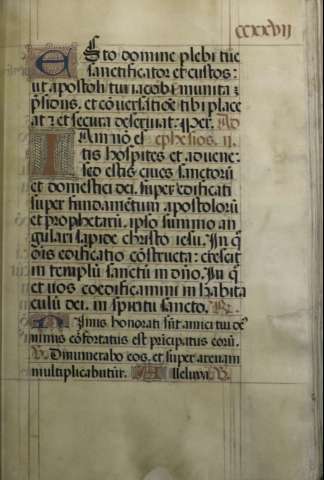 ccxxvii
Esto domine plebi tue
sanctificator et custos:
ut apostoli tui iacobi munita
p̄sidiis. et cōversatiōe tibi place
at ⁊ et secura deserviat: Per. Ad
Iam nō es ephesios. ii.
tis hospites et advene:
sed estis cives sanctorū
et domestici dei. super edificati
super fundamētum apostolorū
et prophetarū. ipso summo an
gulari lapide christo iesu. In q̄
ōis edificatio cōstructa: crescit
in templū sanctū in dn̄o. In q̄
et vos coedificamini in habita
culū dei. in spiritu sancto. R.
Nimis honorati sūt amici tui de⁹
nimis cōfortatus est p̄ncipatus eorū.
V. Dinumerabo eos. et super arenam
multiplicabūtur. Alleluya. V.